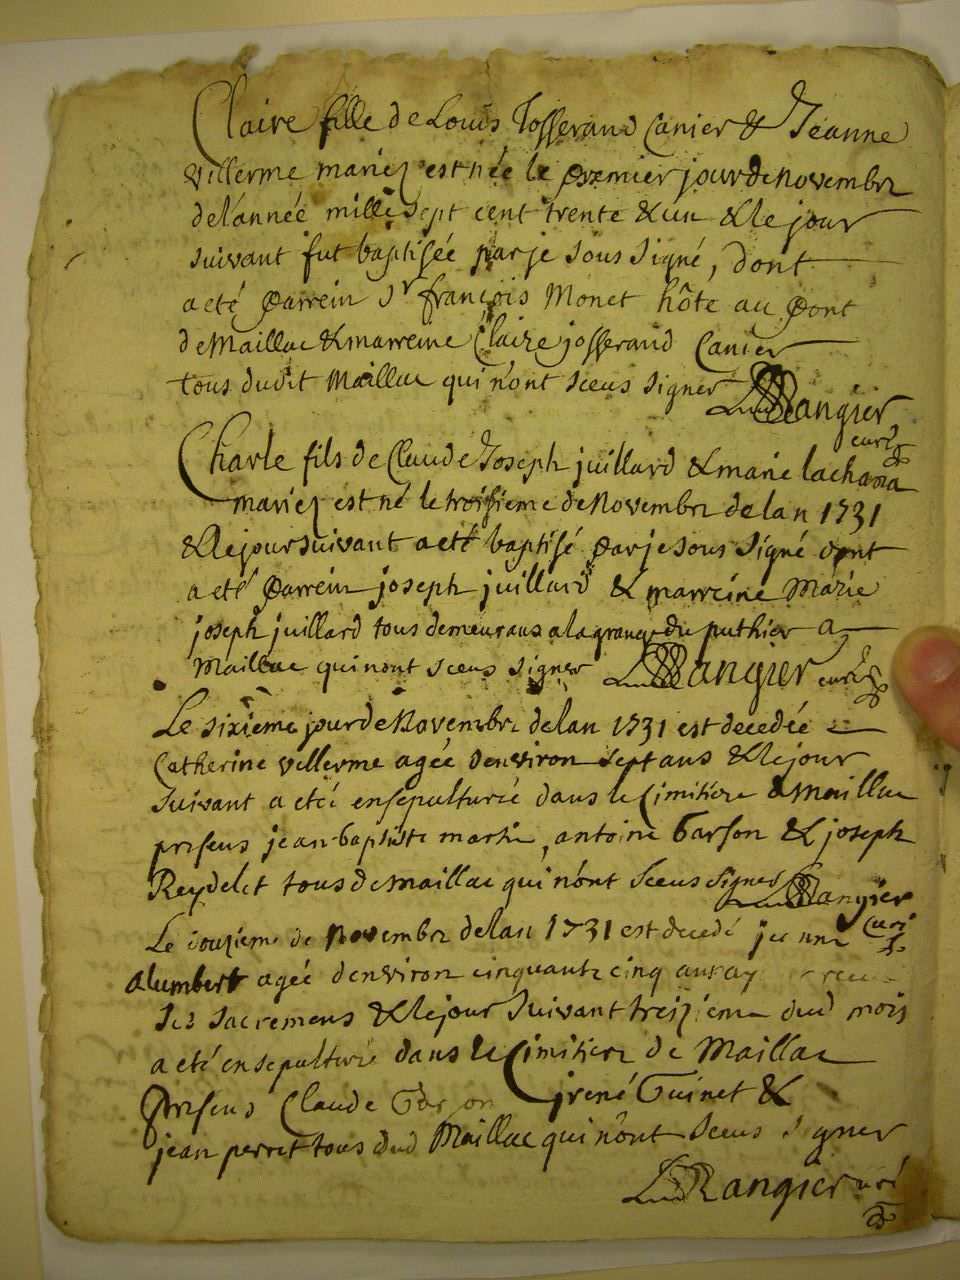 Claire fille de Louis Josserand Canier & Jeanne
villerme mariez est née le premier jour de novembre
de l'année mille sept cent trente & un & le jour
suivant fut baptisée par je sous signé, dont
a eté parrein Sr françois Monet hôte au pont
de Maillac & marreine Claire josserand Canier
tous dudit Maillac qui n'ont sceus signer Rangier
curé
Charle fils de Claude Joseph juillard & marie lachara
mariez est né le troisieme de Novembre de lan 1731
& le jour suivant a eté baptisé par je sous signé dont
a eté parrein joseph juillard & marreine Marie
joseph juillard tous demeurans a la grange du puthier a
Maillac qui n'ont sceus signer Rangier curé
Le sixième jour de Novembre de lan 1731 est decedée
Catherine villerme agée d'environ sept ans & le jour
suivant a eté ensepulturée dans le Cimitiere de Maillac
presens jean-baptiste martin, antoine Garson & joseph
Reydelet tous de maillac qui n'ont sceus signer Rangier
Le douzieme de Novembre de lan 1731 est decedé jeanne curé
alumbert agée d'environ cinquante cinq ans ay receu
ses sacremens & le jour suivant treizieme dud mois
a eté ensepulturée dans le Cimitiere de Maillac
presens Claude Garson jrené Guinet &
jean perret tous dud Maillac qui n'ont sceus signer
Rangier curé